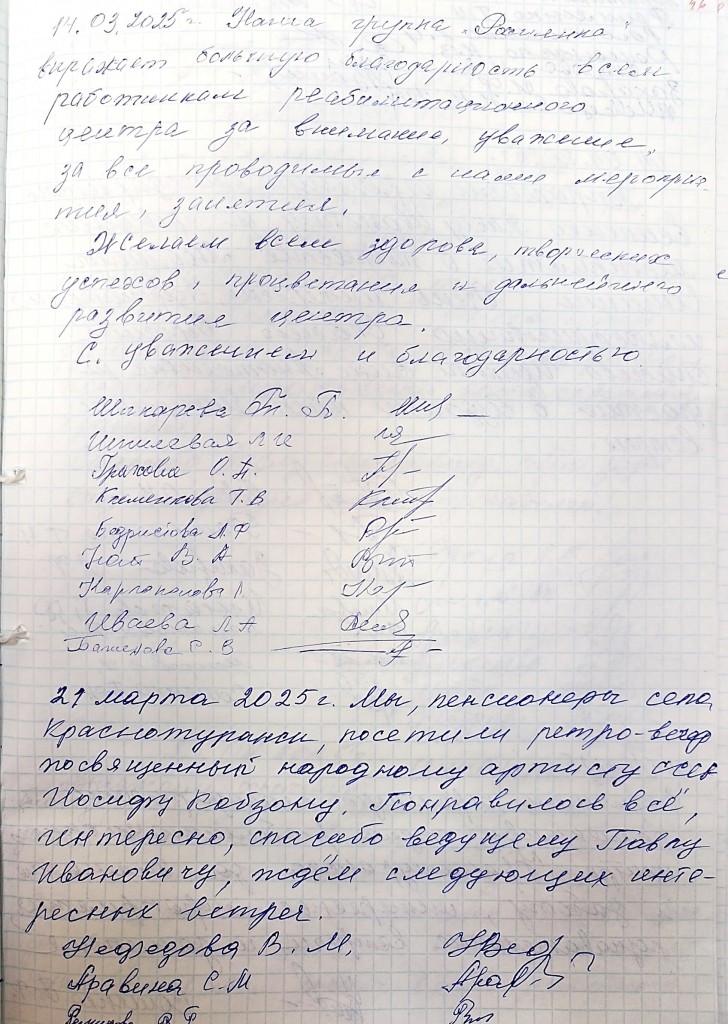 14.03.2025 г. Наша группа „Ромашка"
выражает большую благодарность всем
работникам реабилитационного
центра за внимание, уважение,
за все проводимые с нами мероприя-
тия, занятия.
Желаем всем здоровя, творческих
успехов, процветания и дальнейшего
развития центра.
С. уважением и благодарностью.
Т. П.
Шпилевая Л И
О. П.
Клеменкова Т. В
Л. Ф
В. А
Иваева Л А
Баженова С. В
21 марта 2025 г. Мы, пенсионеры села
Краснотуранск, посетили ретро-вечер
посвященный народному артисту СССР
Иосифу Кобзону. Понравилось всё,
интересно, спасибо ведущему Павлу
Ивановичу, ждём следующих инте-
ресных встреч.
Нефедова В. М.
Аравина С. М